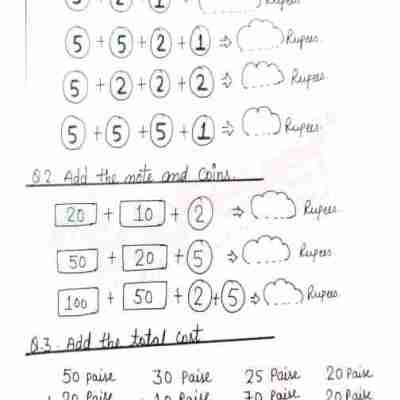 5 + 2 + 1 ⇒ Rupees
5 + 5 + 2 + 1 ⇒ Rupees
5 + 2 + 2 + 2 ⇒ Rupees.
5 + 5 + 5 + 1 ⇒ Rupees.
Q.2. Add the note and coins.
20 + 10 + 2 ⇒ Rupees.
50 + 20 + 5 ⇒ Rupees.
100 + 50 + 2 + 5 ⇒ Rupees.
Q.3. Add the total cost
50 Paise 30 Paise 25 Paise 20 Paise
+ 20 Paise + 10 Paise 70 Paise 20 Paise